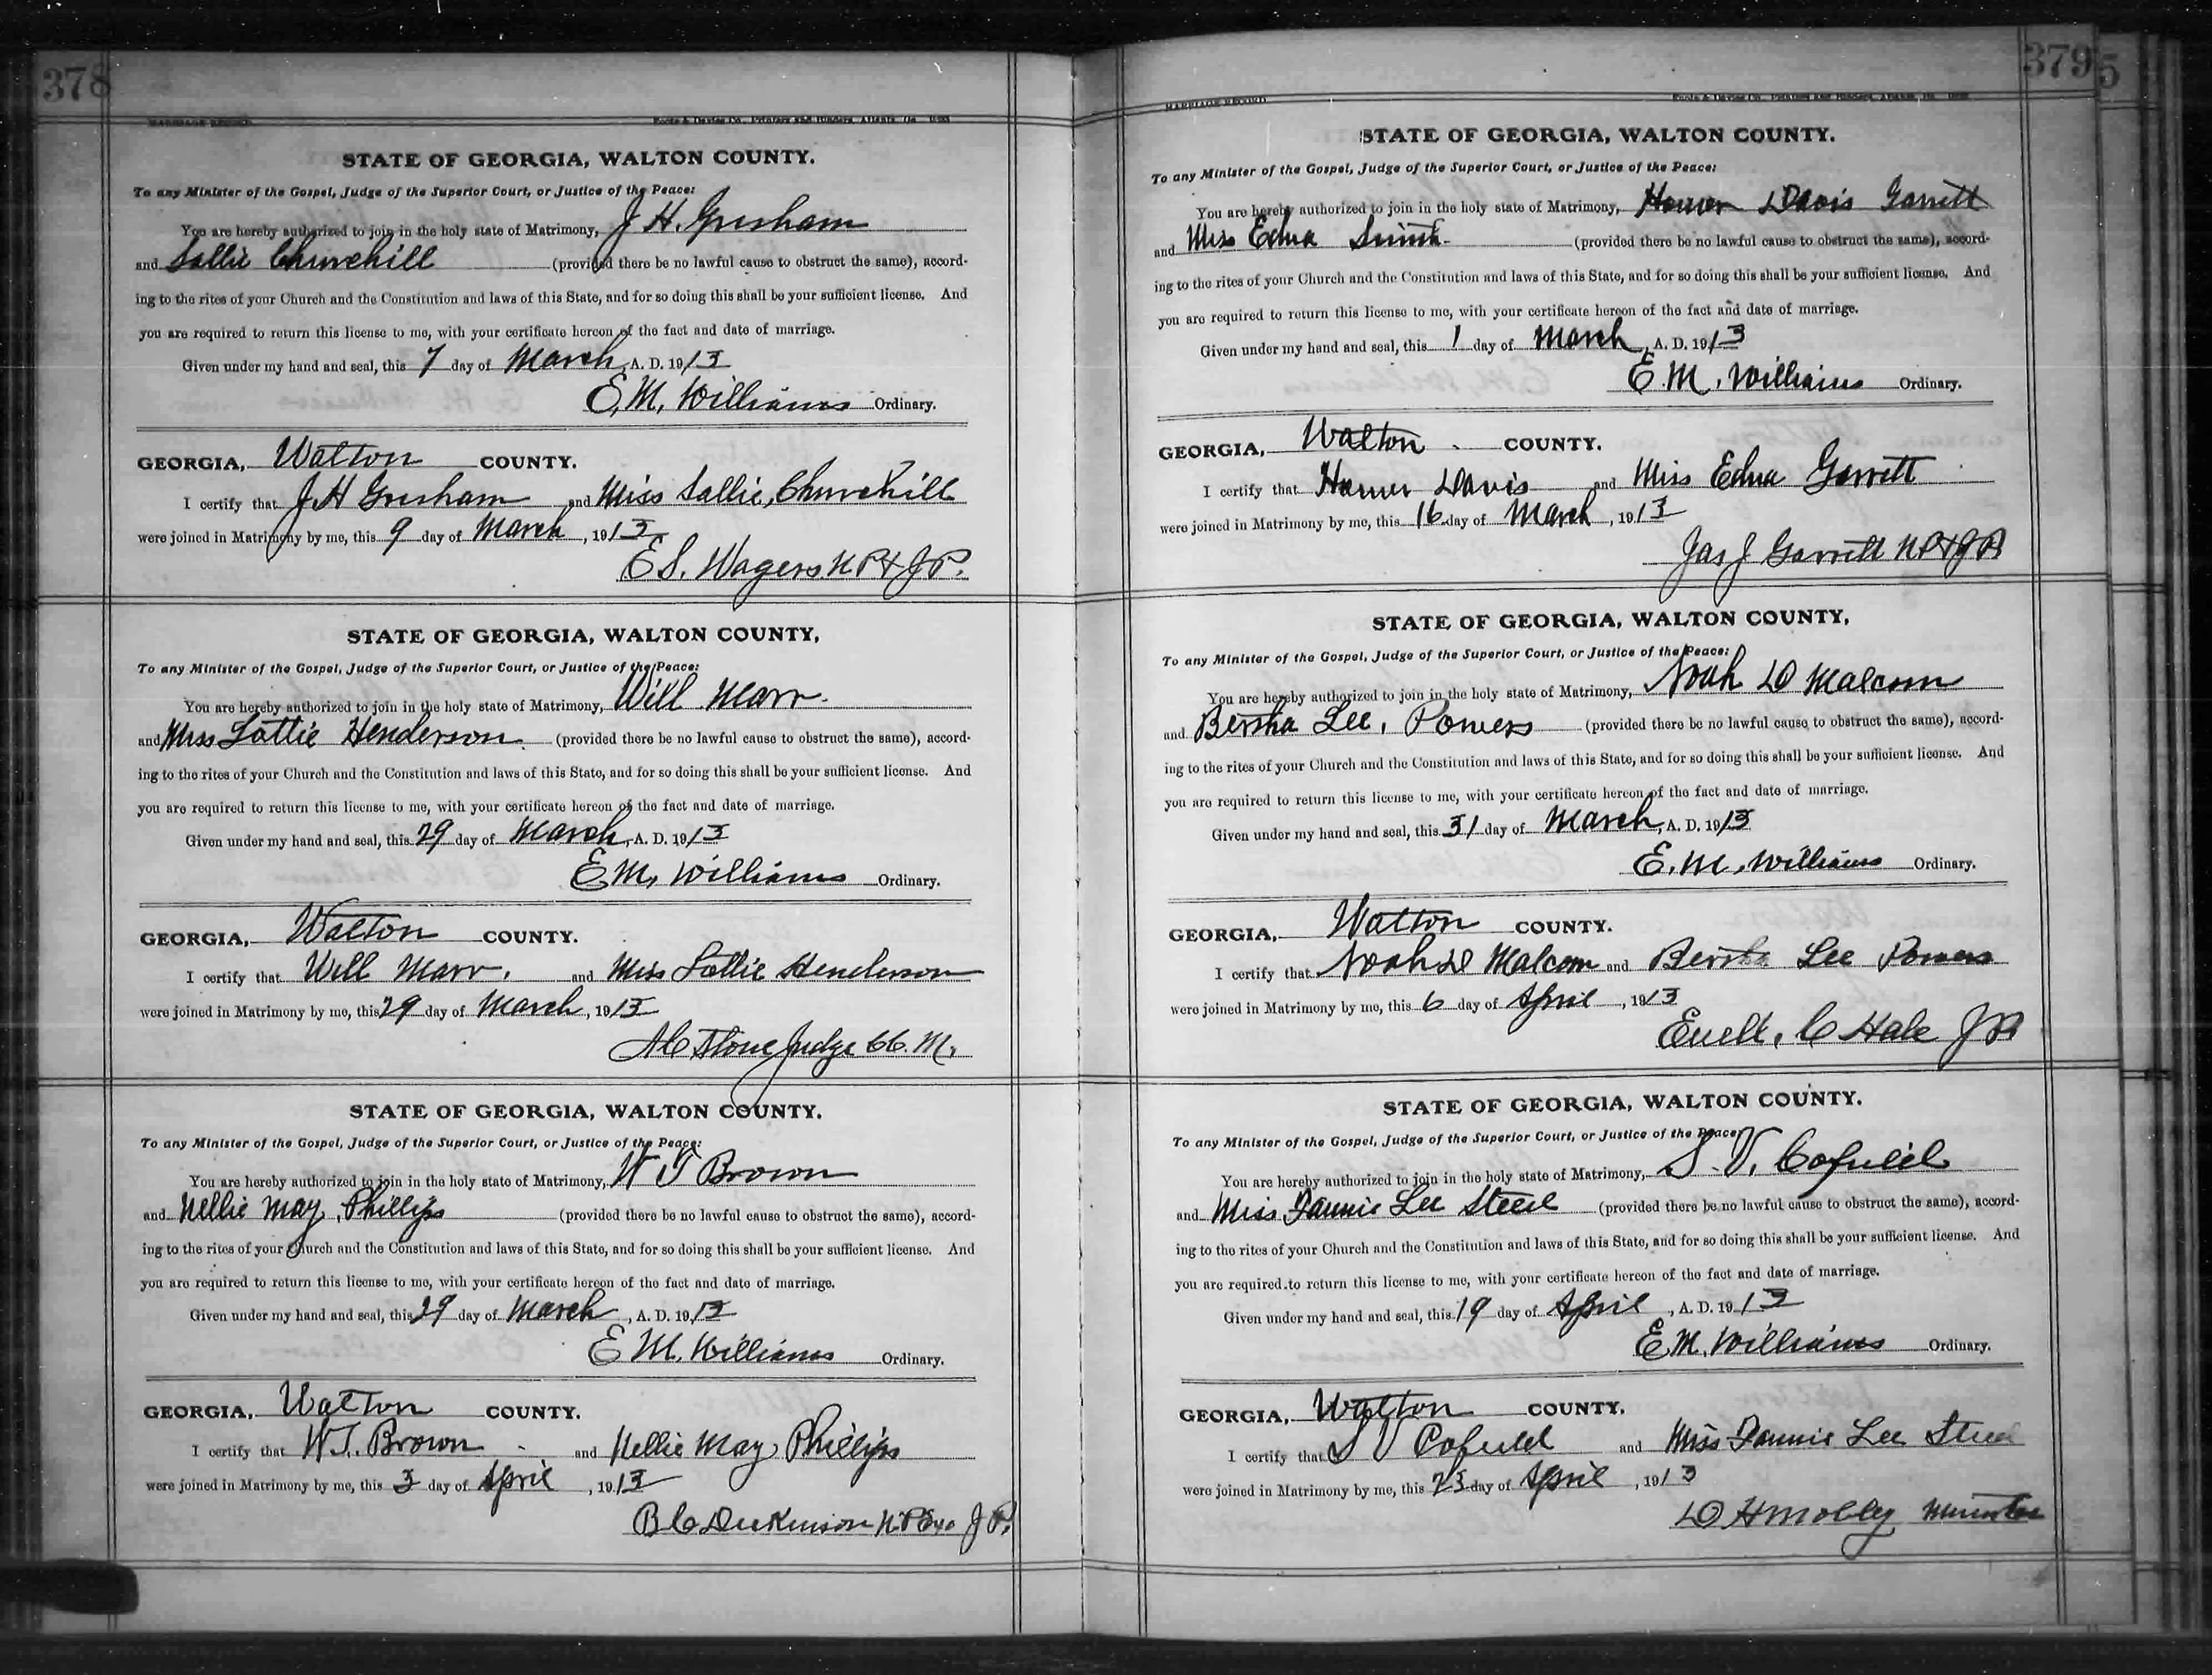 378
MARRIAGE RECORD
Foote & Davies Co., Printers and Binders, Atlanta, Ga.
STATE OF GEORGIA, WALTON COUNTY.
To any Minister of the Gospel, Judge of the Superior Court, or Justice of the Peace:
You are hereby authorized to join in the holy state of Matrimony, J H. Gresham
and Sallie Churchill (provided there be no lawful cause to obstruct the same), accord-
ing to the rites of your Church and the Constitution and laws of this State, and for so doing this shall be your sufficient license. And
you are required to return this license to me, with your certificate hereon of the fact and date of marriage.
Given under my hand and seal, this 7 day of March, A. D. 1913
E. M. Williams Ordinary.
GEORGIA, Walton COUNTY.
I certify that J. H Gresham and Miss Sallie Churchill
were joined in Matrimony by me, this 9 day of March, 1913
E S. Wagers N P & J P.
STATE OF GEORGIA, WALTON COUNTY,
To any Minister of the Gospel, Judge of the Superior Court, or Justice of the Peace:
You are hereby authorized to join in the holy state of Matrimony, Will Marr.
and Miss Lottie Henderson (provided there be no lawful cause to obstruct the same), accord-
ing to the rites of your Church and the Constitution and laws of this State, and for so doing this shall be your sufficient license. And
you are required to return this license to me, with your certificate hereon of the fact and date of marriage.
Given under my hand and seal, this 29 day of March, A. D. 1913
E M. Williams Ordinary.
GEORGIA, Walton COUNTY.
I certify that Will Marr. and Miss Lottie Henderson
were joined in Matrimony by me, this 29 day of March, 1913
A C Stone Judge C C. M.
STATE OF GEORGIA, WALTON COUNTY.
To any Minister of the Gospel, Judge of the Superior Court, or Justice of the Peace:
You are hereby authorized to join in the holy state of Matrimony, W T Brown
and Nellie May Phillips (provided there be no lawful cause to obstruct the same), accord-
ing to the rites of your Church and the Constitution and laws of this State, and for so doing this shall be your sufficient license. And
you are required to return this license to me, with your certificate hereon of the fact and date of marriage.
Given under my hand and seal, this 29 day of March, A. D. 1913
E M. Williams Ordinary.
GEORGIA, Walton COUNTY.
I certify that W. T. Brown and Nellie May Phillips
were joined in Matrimony by me, this 3 day of April, 1913
B C Dickinson N. P. Exo J P.
379
5
MARRIAGE RECORD
Foote & Davies Co., Printers and Binders, Atlanta, Ga.
STATE OF GEORGIA, WALTON COUNTY.
To any Minister of the Gospel, Judge of the Superior Court, or Justice of the Peace:
You are hereby authorized to join in the holy state of Matrimony, Homer Davis Garrett
and Miss Edna Smith (provided there be no lawful cause to obstruct the same), accord-
ing to the rites of your Church and the Constitution and laws of this State, and for so doing this shall be your sufficient license. And
you are required to return this license to me, with your certificate hereon of the fact and date of marriage.
Given under my hand and seal, this 1 day of March, A. D. 1913
E. M. Williams Ordinary.
GEORGIA, Walton COUNTY.
I certify that Homer Davis and Miss Edna Garrett
were joined in Matrimony by me, this 16 day of March, 1913
Jas J Garrett N P & J P
STATE OF GEORGIA, WALTON COUNTY,
To any Minister of the Gospel, Judge of the Superior Court, or Justice of the Peace:
You are hereby authorized to join in the holy state of Matrimony, Noah D Malcom
and Bertha Lee Powers (provided there be no lawful cause to obstruct the same), accord-
ing to the rites of your Church and the Constitution and laws of this State, and for so doing this shall be your sufficient license. And
you are required to return this license to me, with your certificate hereon of the fact and date of marriage.
Given under my hand and seal, this 31 day of March, A. D. 1913
E. M. Williams Ordinary.
GEORGIA, Walton COUNTY.
I certify that Noah D Malcom and Bertha Lee Powers
were joined in Matrimony by me, this 6 day of April, 1913
Euell. C Hale J P
STATE OF GEORGIA, WALTON COUNTY.
To any Minister of the Gospel, Judge of the Superior Court, or Justice of the Peace:
You are hereby authorized to join in the holy state of Matrimony, S. V. Cofield
and Miss Fannie Lee Steele (provided there be no lawful cause to obstruct the same), accord-
ing to the rites of your Church and the Constitution and laws of this State, and for so doing this shall be your sufficient license. And
you are required to return this license to me, with your certificate hereon of the fact and date of marriage.
Given under my hand and seal, this 19 day of April, A. D. 1913
E M. Williams Ordinary.
GEORGIA, Walton COUNTY.
I certify that S V Cofield and Miss Fannie Lee Steele
were joined in Matrimony by me, this 23 day of April, 1913
D H Mobley Minister